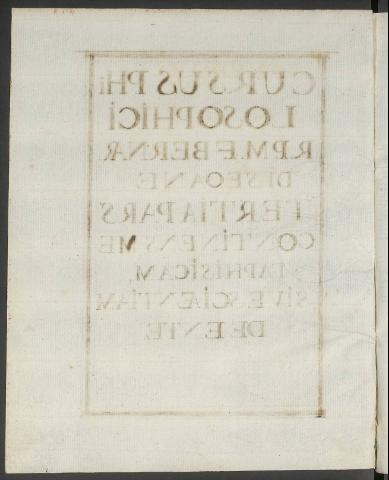 CURSUS PHI
LOSOPHICI
R.P.M.F. BERNAR
DI SEOANE
TERTIA PARS
CONTINENS ME
TAPHISICAM,
SIVE SCIÆNTIAM
DE ENTE